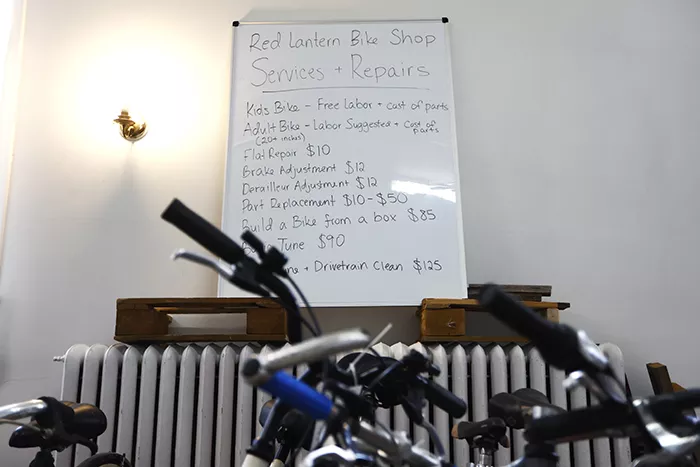 Red Lantern Bike Shop
Services + Repairs
Kids Bike - Free Labor + cost of parts
Adult Bike - Labor Suggested + Cost of parts
(20+ inches)
Flat Repair $10
Brake Adjustment $12
Derailleur Adjustment $12
Part Replacement $10-$50
Build a Bike from a box $85
Tune $90
+ Drivetrain Clean $125